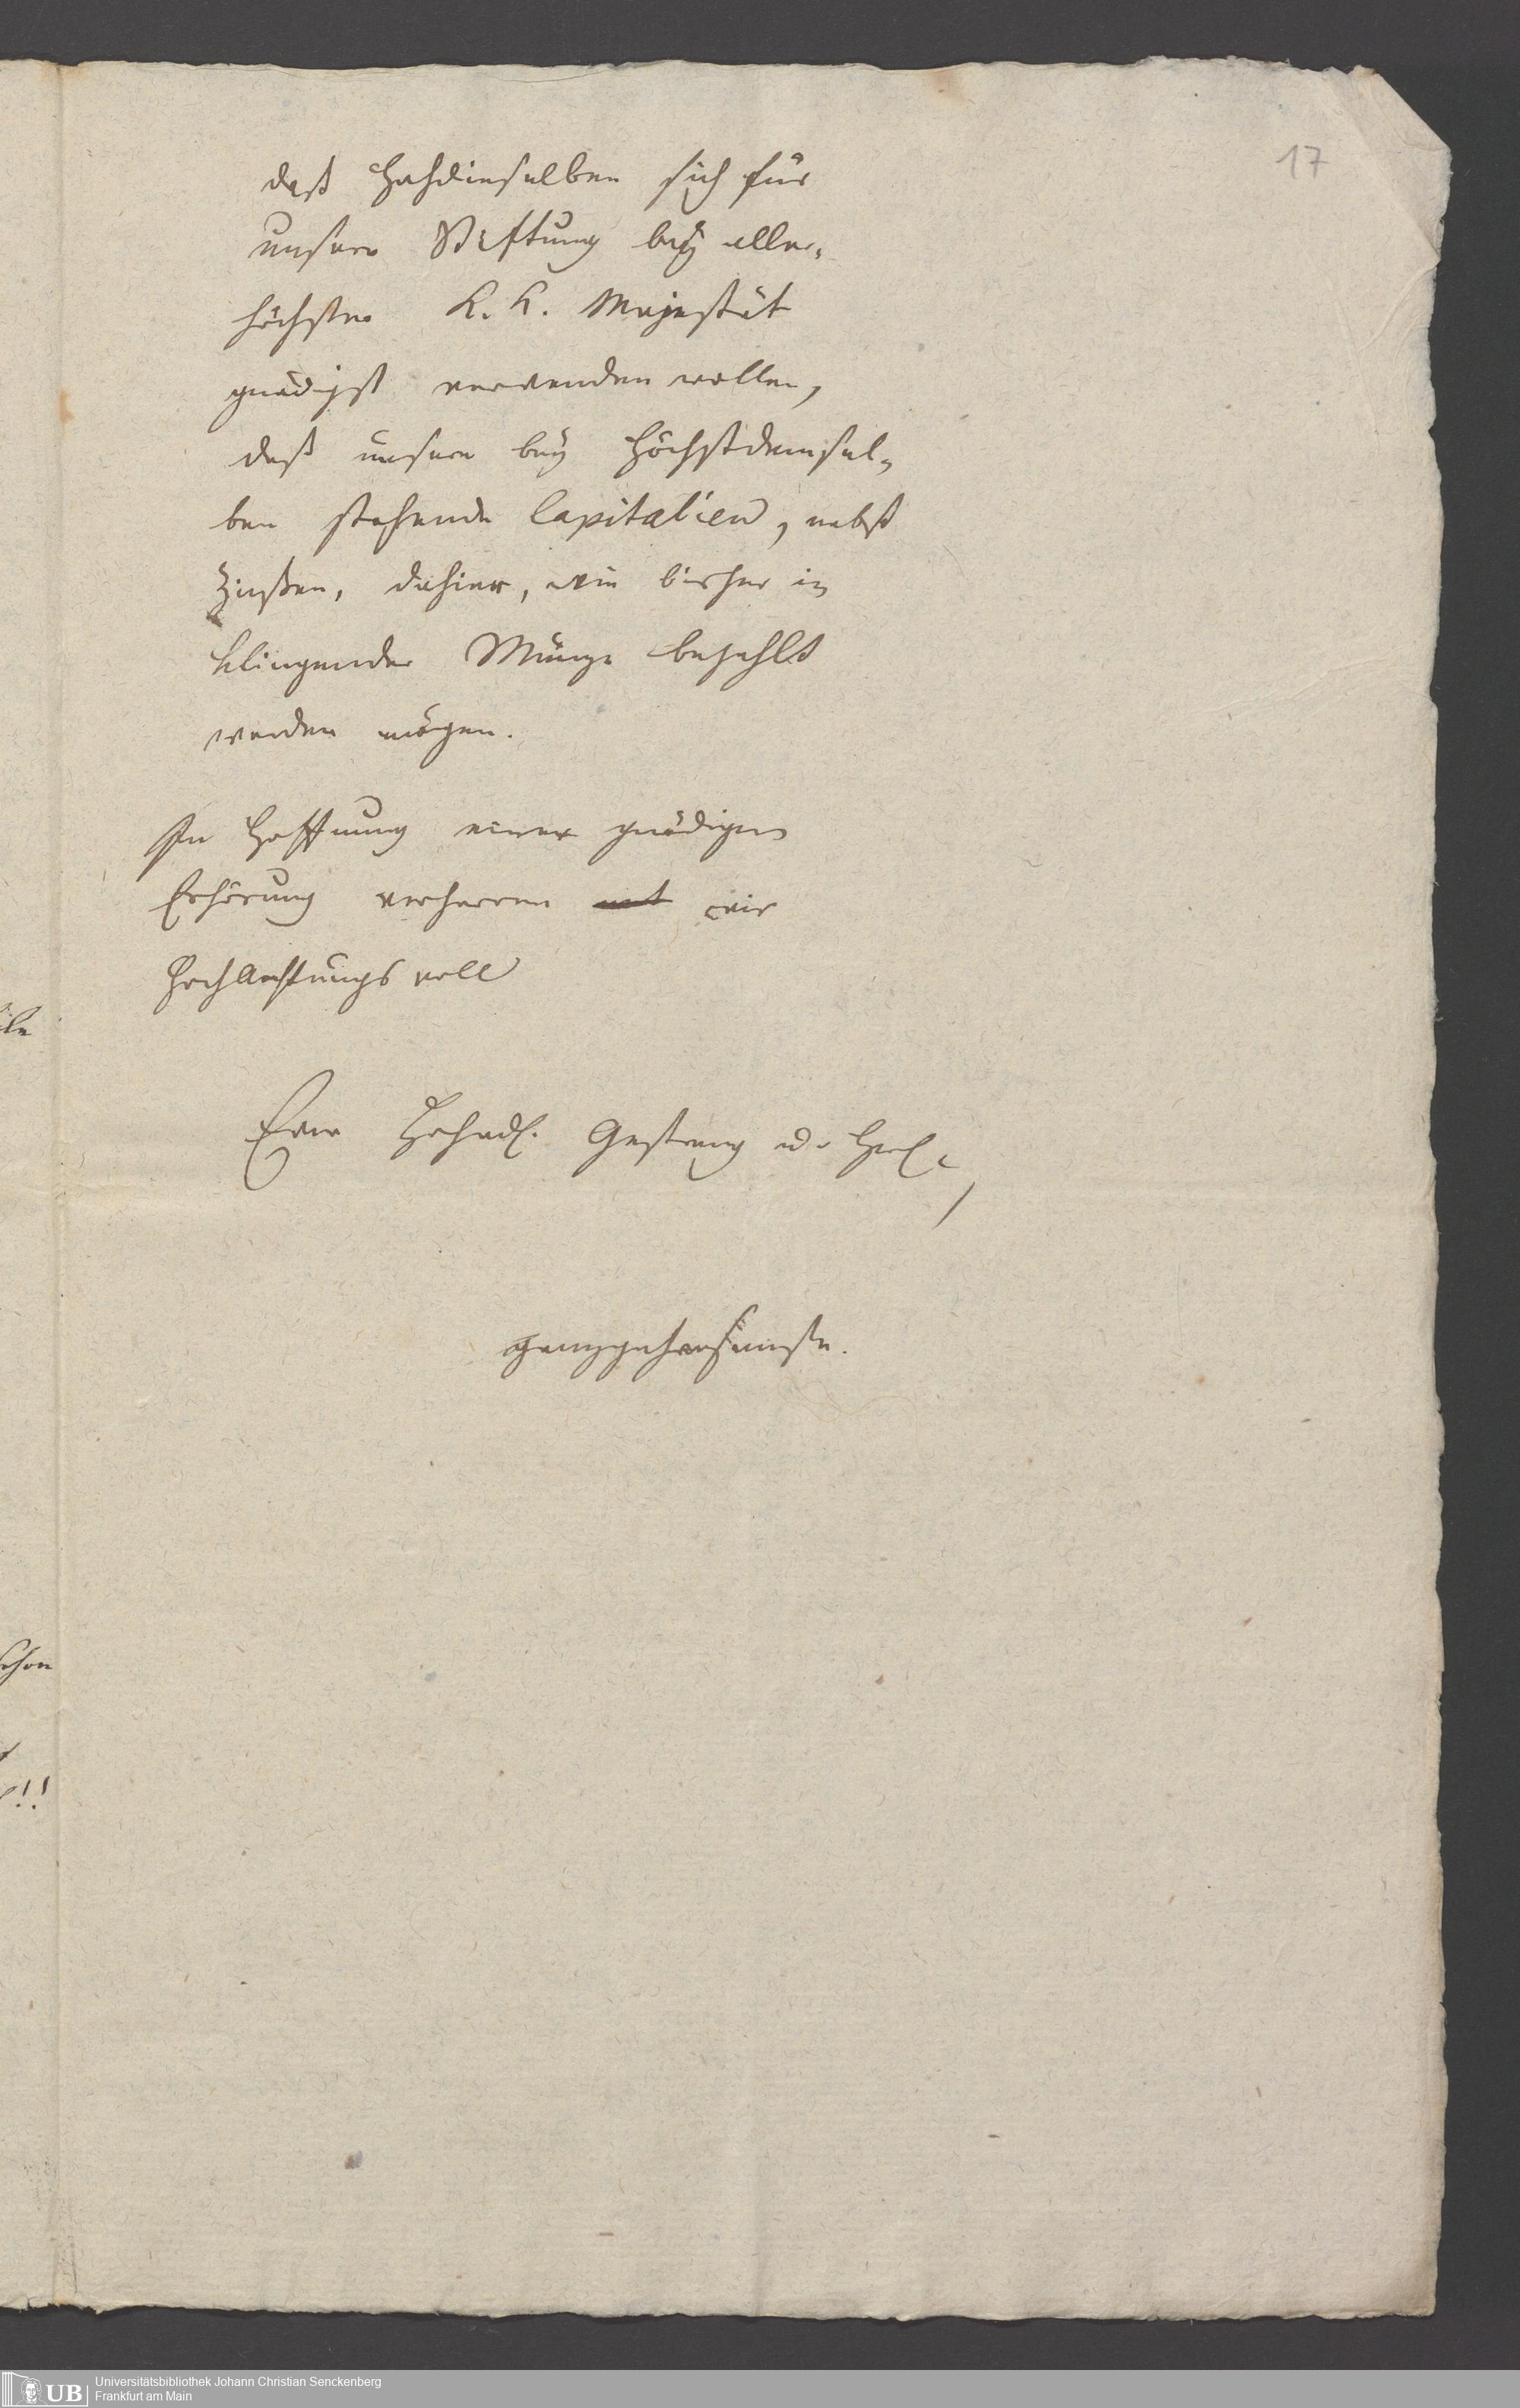 17
daß Hochdieselben sich für
unsere Stiftung bey aller-
höchster K. K. Majestät
gnädigst verwenden wollen,
daß unsere bey Höchstdensel-
ben stehende Capitalien, nebst
Zinßen, dahier, wie bisher in
klingender Münze bezahlt
werden mögen.
In Hoffnung einer gnädigen
Erhörung verharren mit wir
HochAchtungsvoll
Euer Hochadl. Gestreng
ganzgehorsamste.
schon
!!
UB
Universitätsbibliothek Johann Christian Senckenberg
Frankfurt am Main